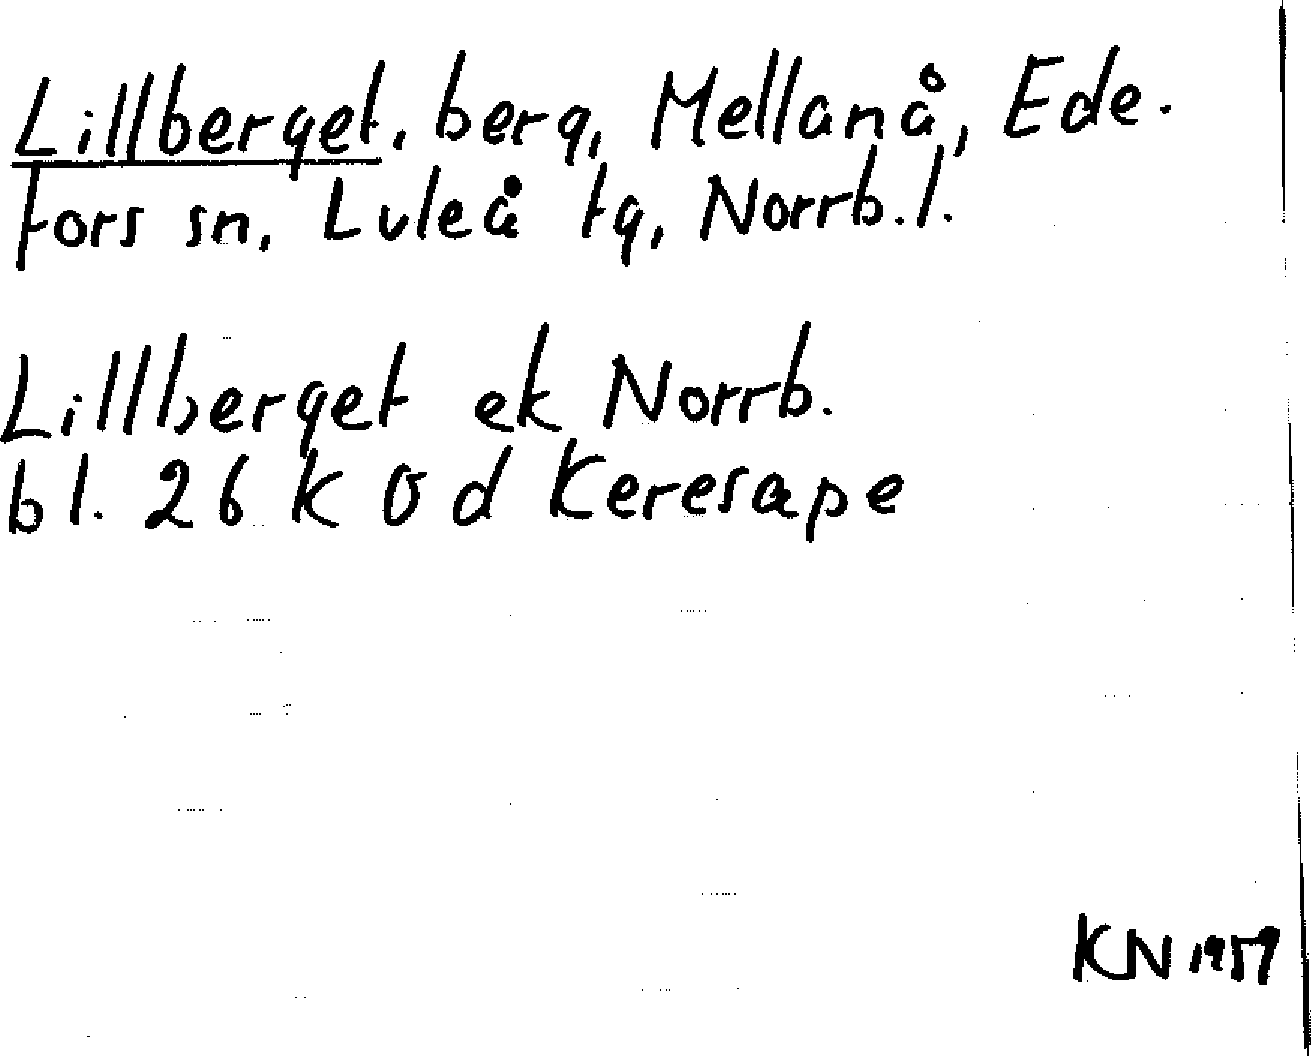 Lillberget, berg, Mellanå, Ede-
fors sn, Luleå tg, Norrb. l.
Lillberget ek Norrb.
bl. 26 K 0 d Keresape
KN 1959